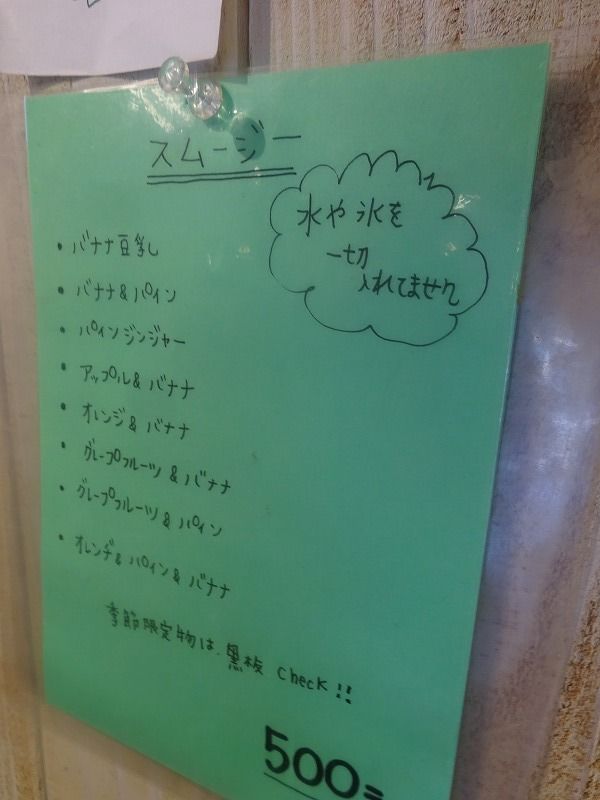 スムージー
水や氷を
一切
入れてません
・バナナ豆乳
・バナナ&パイン
・パインジンジャー
・アップル&バナナ
・オレンジ&バナナ
・グレープフルーツ&バナナ
・グレープフルーツ&パイン
・オレンヂ&パイン&バナナ
季節限定物は、黒板 check!!
500=